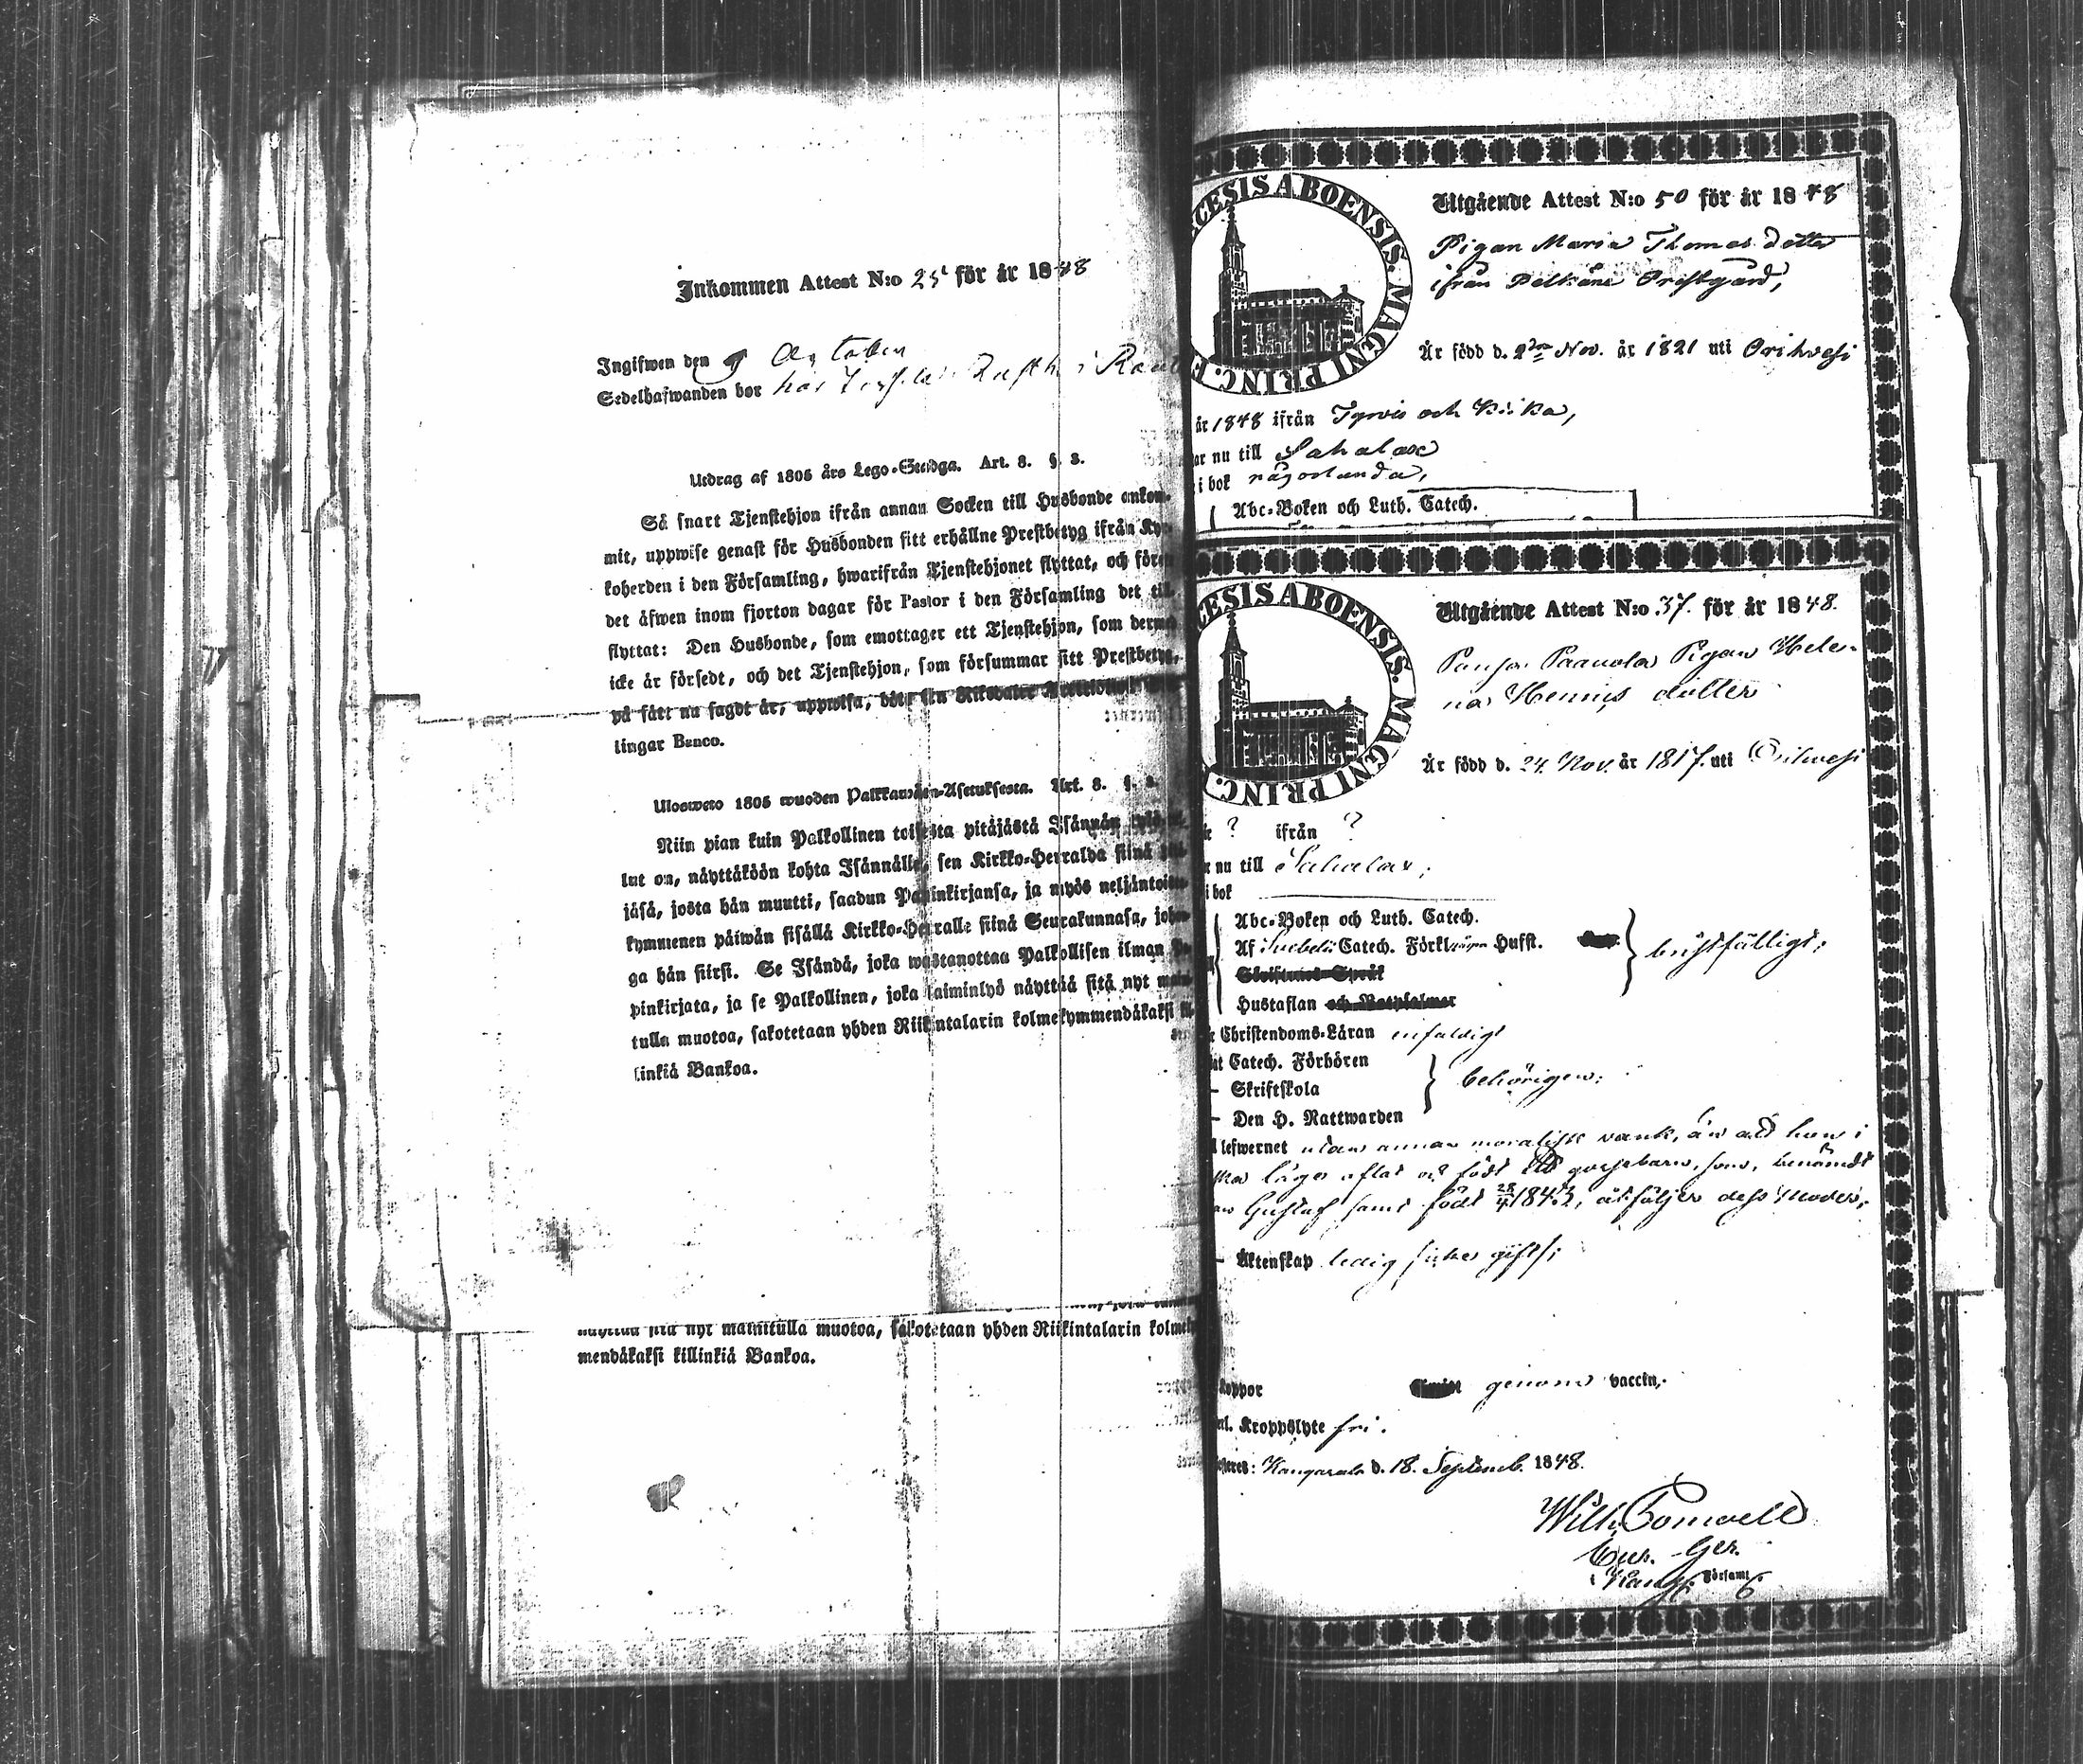 Inkommen Attest N:o 25 för år 1848
Ingifwen den October
Sedelhafwanden bor hos
Utdrag af 1805 års Lego-Stadga. Art. 8. §. 3.
Så snart Tjenstehjon ifrån annan Socken till Husbonde ankom-
mit, uppwise genast för Husbonden sitt erhållne Prestbetyg ifrån Kyr-
koherden i den Församling, hwarifrån Tjenstehjonet flyttat, och före
det äfwen inom fjorton dagar för Pastor i den Församling det till-
flyttat: Den Husbonde, som emottager ett Tjenstehjon, som dermed
icke är försedt, och det Tjenstehjon, som försummar sitt Prestbetyg,
på sätt nu sagdt är, uppwisa, böte en Riksdaler
lingar Banco.
Ulosweto 1805 wuoden Palkkawäen-Asetuksesta. Art. 8. §.
Niin pian kuin Palkollinen toisesta pitäjästä Isännän
lut on, näyttäköön kohta Isännälle, sen Kirkko-Herralda siinä
jäsä, josta hän muutti, saadun Papinkirjansa, ja myös neljäntoista
kymmenen päiwän sisällä Kirkko-Herralle siinä Seurakunnasa, johon-
ga hän siirsi. Se Isändä, joka wastanottaa Palkollisen ilman Pa-
pinkirjata, ja se Palkollinen, joka laiminlyö näyttää sitä nyt mai-
tulla muotoa, sakotetaan yhden Riikintalarin kolmekymmendäkaksi kil-
linkiä Bankoa.
näyttää sitä nyt mainitulla muotoa, sakotetaan yhden Riikintalarin kolmeky
mendäkaksi killinkiä Bankoa.
CESIS ABOENSIS. MAGNI PRINC. F
Utgående Attest N:o 50 för år 1848
Pigan Maria Thomas dotter
ifrån Pelkäne Prestgård,
Är född d. 2dra Nov. år 1821 uti Orihvesi
år 1848 ifrån Tyrvis och Kiika,
ar nu till Sahalax
i bok någorlunda,
Abc-Boken och Luth. Catech.
CESIS ABOENSIS. MAGNI PRINC. F
Utgående Attest N:o 37. för år 1848.
Paavola Pigan Hele-
na Henrics dotter
Är född d. 24. Nov. år 1817. uti Orihvesi
? ifrån ?
r nu till Sahalax,
i bok
Abc-Boken och Luth. Catech.
Af Svebelii Catech. Förkl. Husst. bristfälligt;
Skriftenes Språk
Hustaflan och Botpsalmer
Christendoms-Läran enfaldigt
Catech. Förhören
– Skriftskola behörigen;
– Den H. Nattwarden
lefwernet utan annan moralisk vank, än att hon i
läger aflat och födt ett gossebarn, som, benämdt
Gustaf samt födt 28/4 1843, åtföljer dess moder;
– Äktenskap ledig giftS;
koppor genom vaccin,
Kroppslyte fri.
Kangasala d. 18. Septemb. 1848.
Wilh. Pomoell
Cur. Ger.
Kang. Församl.